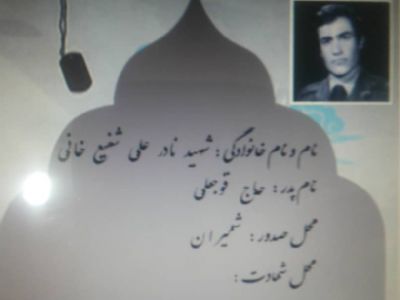 نام و نام خانوادگی: شهید نادر علی شفیع خانی
نام پدر: حاج قوجعلی
محل صدور: شمیران
محل شهادت: